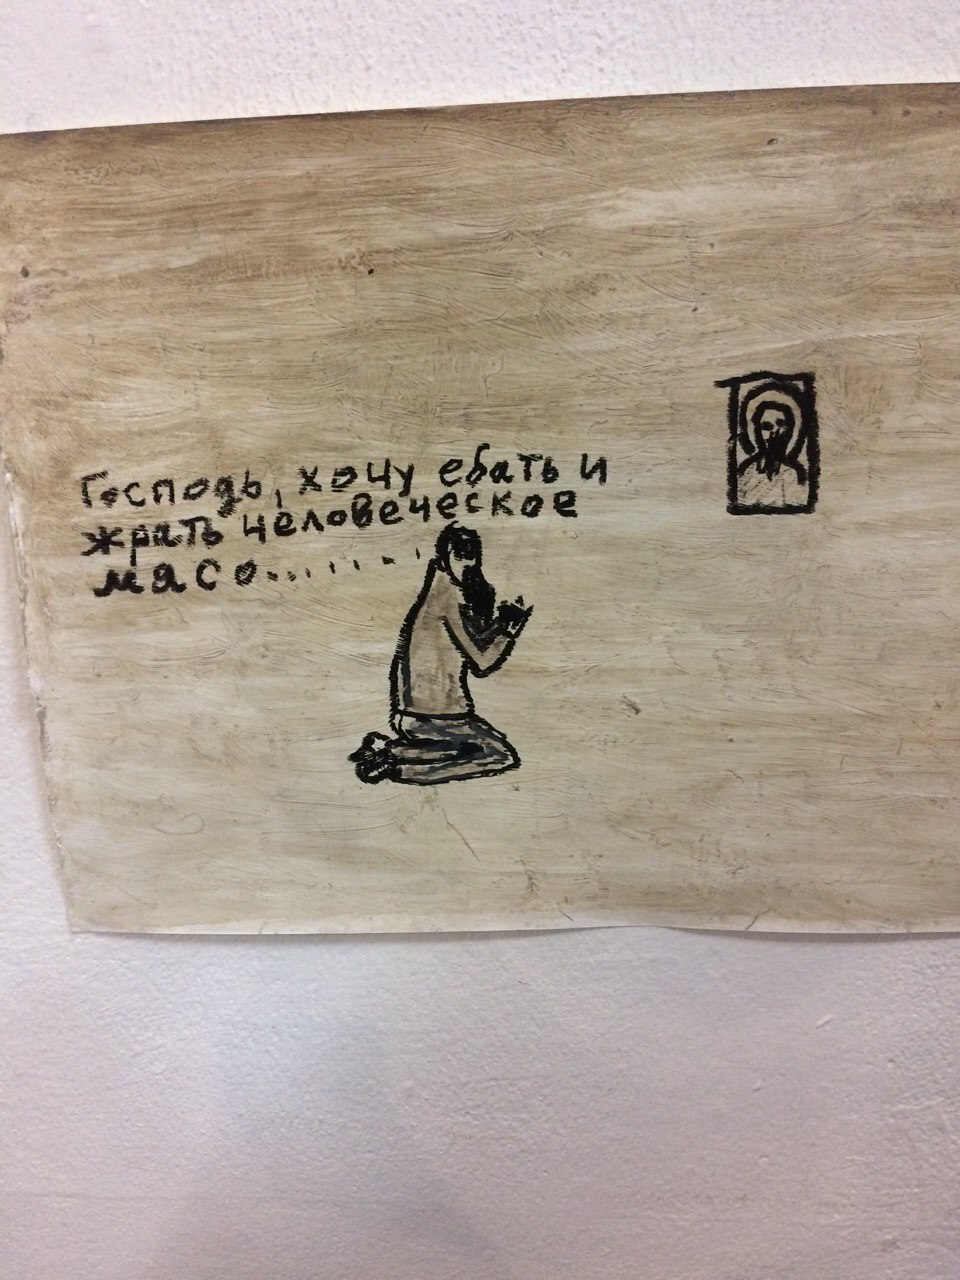 Господь, хочу ебать и
жрать человеческое
мясо.........